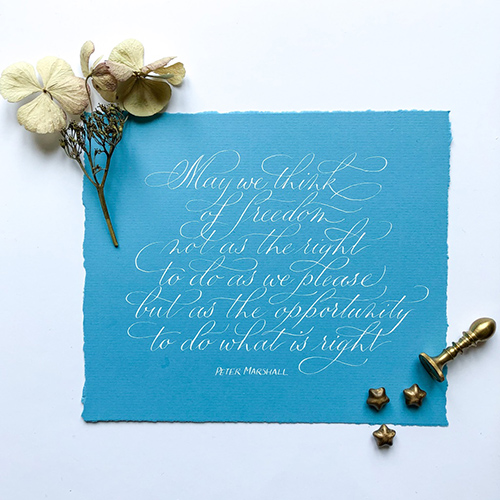 May we think
of freedom
not as the right
to do as we please,
but as the opportunity
to do what is right
PETER MARSHALL